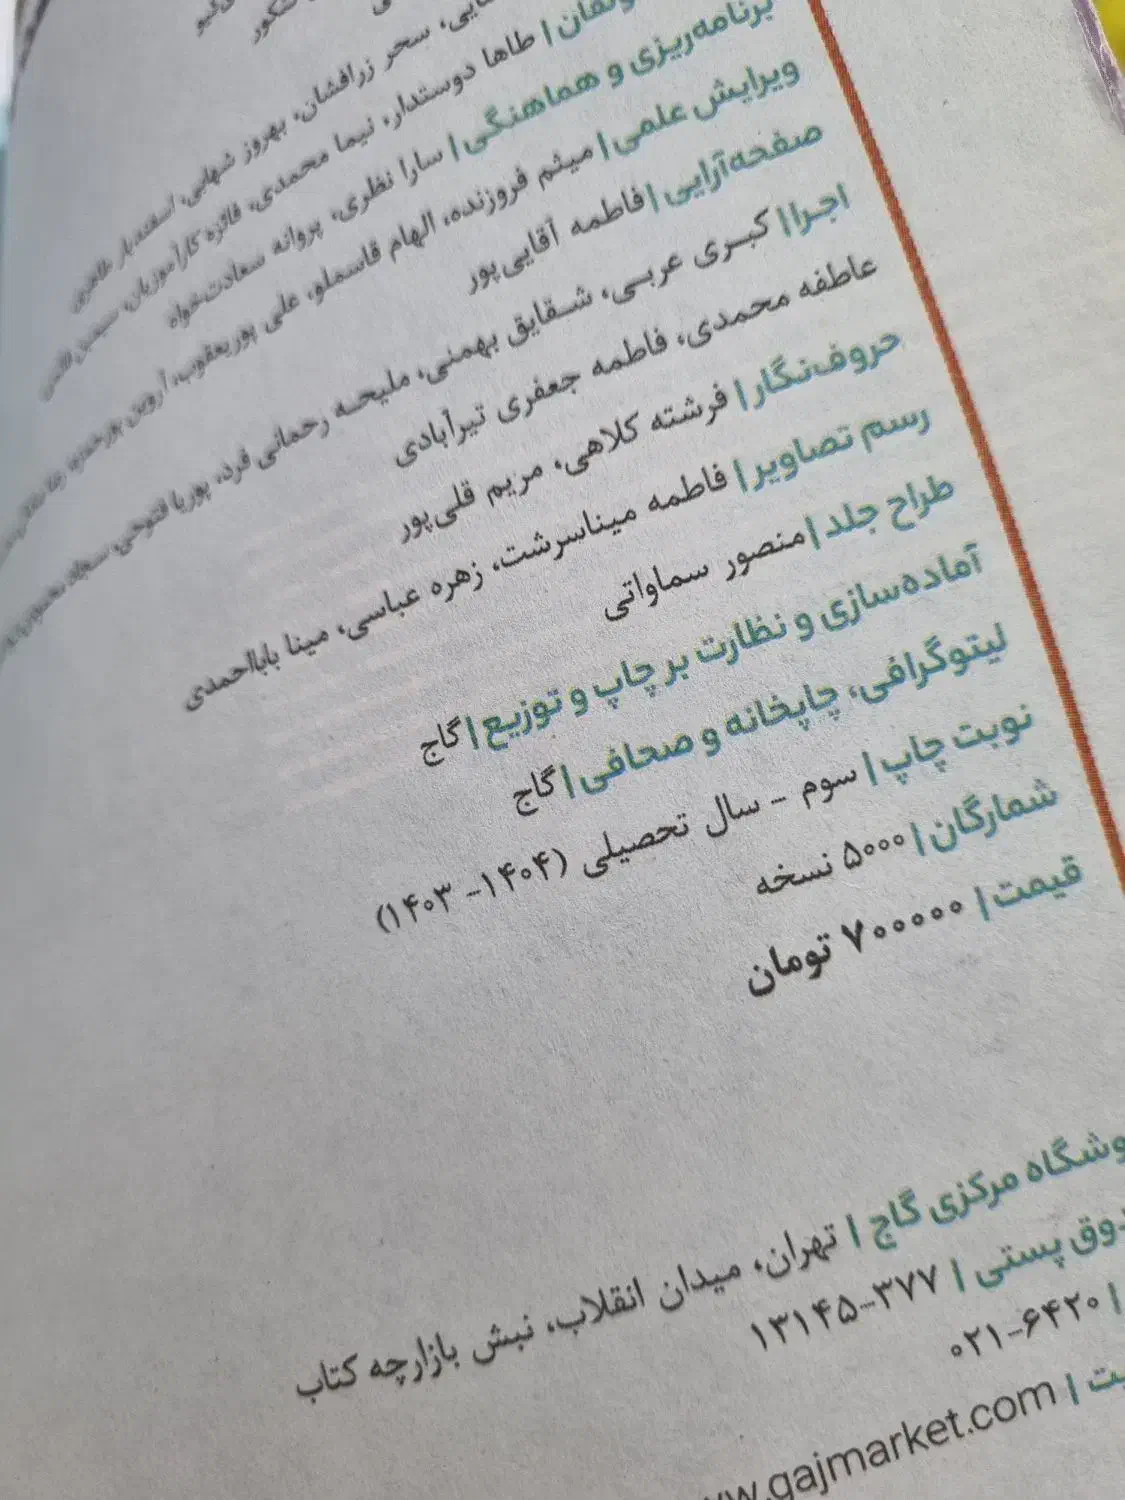 سحر زرافشان، بهروز شهابی، اسفندیار طاهری
طاها دوستدار، نیما محمدی، فائزه کارآموزیان،
برنامه‌ریزی و هماهنگی | سارا نظری، پروانه سعادت‌خواه
ویرایش علمی | میثم فروزنده، الهام قاسملو، علی پوریعقوب،
صفحه‌آرایی | فاطمه آقایی‌پور
اجرا | کبری عربی، شقایق بهمنی، ملیحه رحمانی فرد، پوریا فتوحی، سجاد
عاطفه محمدی، فاطمه جعفری تیرآبادی
حروف‌نگار | فرشته کلاهی، مریم قلی‌پور
رسم تصاویر | فاطمه میناسرشت، زهره عباسی، مینا بابااحمدی
طراح جلد | منصور سماواتی
آماده‌سازی و نظارت بر چاپ و توزیع | گاج
لیتوگرافی، چاپخانه و صحافی | گاج
نوبت چاپ | سوم - سال تحصیلی (۱۴۰۴ - ۱۴۰۳)
شمارگان | ۵۰۰۰ نسخه
قیمت | ۷۰۰۰۰۰ تومان
وشگاه مرکزی گاج | تهران، میدان انقلاب، نبش بازارچه کتاب
دوق پستی | ۳۷۷-۱۳۱۴۵
| ۶۴۲۰-۰۲۱
یت | www.gajmarket.com